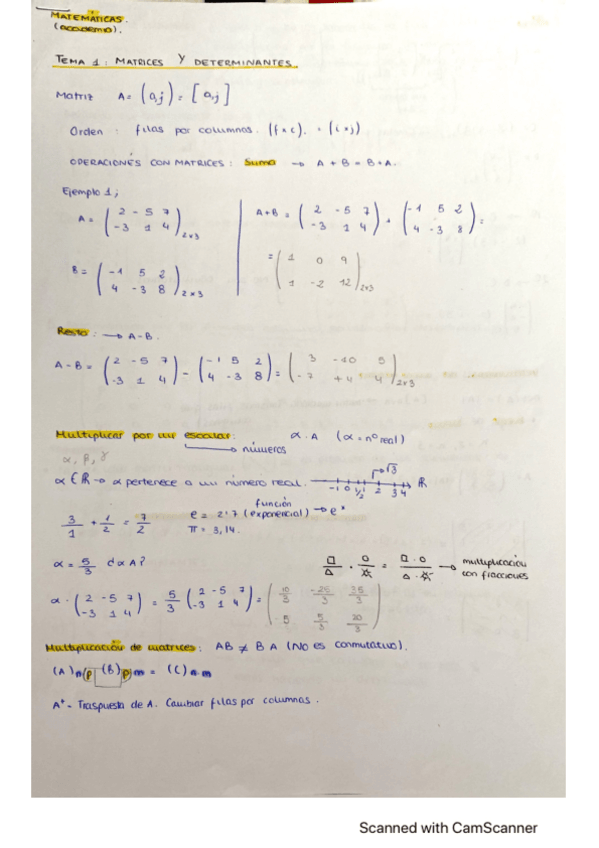 MATEMÁTICAS.
(academia).
TEMA 1: MATRICES Y DETERMINANTES.
Matriz A = (a,j) = [a,j]
Orden : filas por columnas. (f×c). = (i×j)
OPERACIONES CON MATRICES : Suma → A + B = B + A.
Ejemplo 1;
A = ( 2 -5 7
-3 1 4 ) 2×3
B = ( -1 5 2
4 -3 8 ) 2×3
A+B = ( 2 -5 7 + ( -1 5 2 =
-3 1 4 ) 4 -3 8 )
= ( 1 0 9
1 -2 12 ) 2×3
Resta : → A - B.
A - B = ( 2 -5 7 - ( -1 5 2 = ( 3 -10 5
-3 1 4 ) 4 -3 8 ) -7 +4 4 ) 2×3
Multiplicar por un escalar: α · A (α = nº real)
→ números
α, β, γ
α ∈ R → α pertenece a un número real. -1 0 1/2 1 2 √3 3 4 R
3/1 + 1/2 = 7/2
e = 2'7 (función exponencial) → eˣ
π = 3,14.
α = 5/3 ¿αA?
□/△ · ○/☆ = □·○/△·☆ → multiplicación
con fracciones
α · ( 2 -5 7 = 5/3 ( 2 -5 7 = ( 10/3 -25/3 35/3
-3 1 4 ) -3 1 4 ) -5 5/3 20/3 )
Multiplicación de matrices: AB ≠ BA (No es conmutativo).
(A) n(p (B) p)m = (C) n·m
Aᵗ - Traspuesta de A. Cambiar filas por columnas.
Scanned with CamScanner